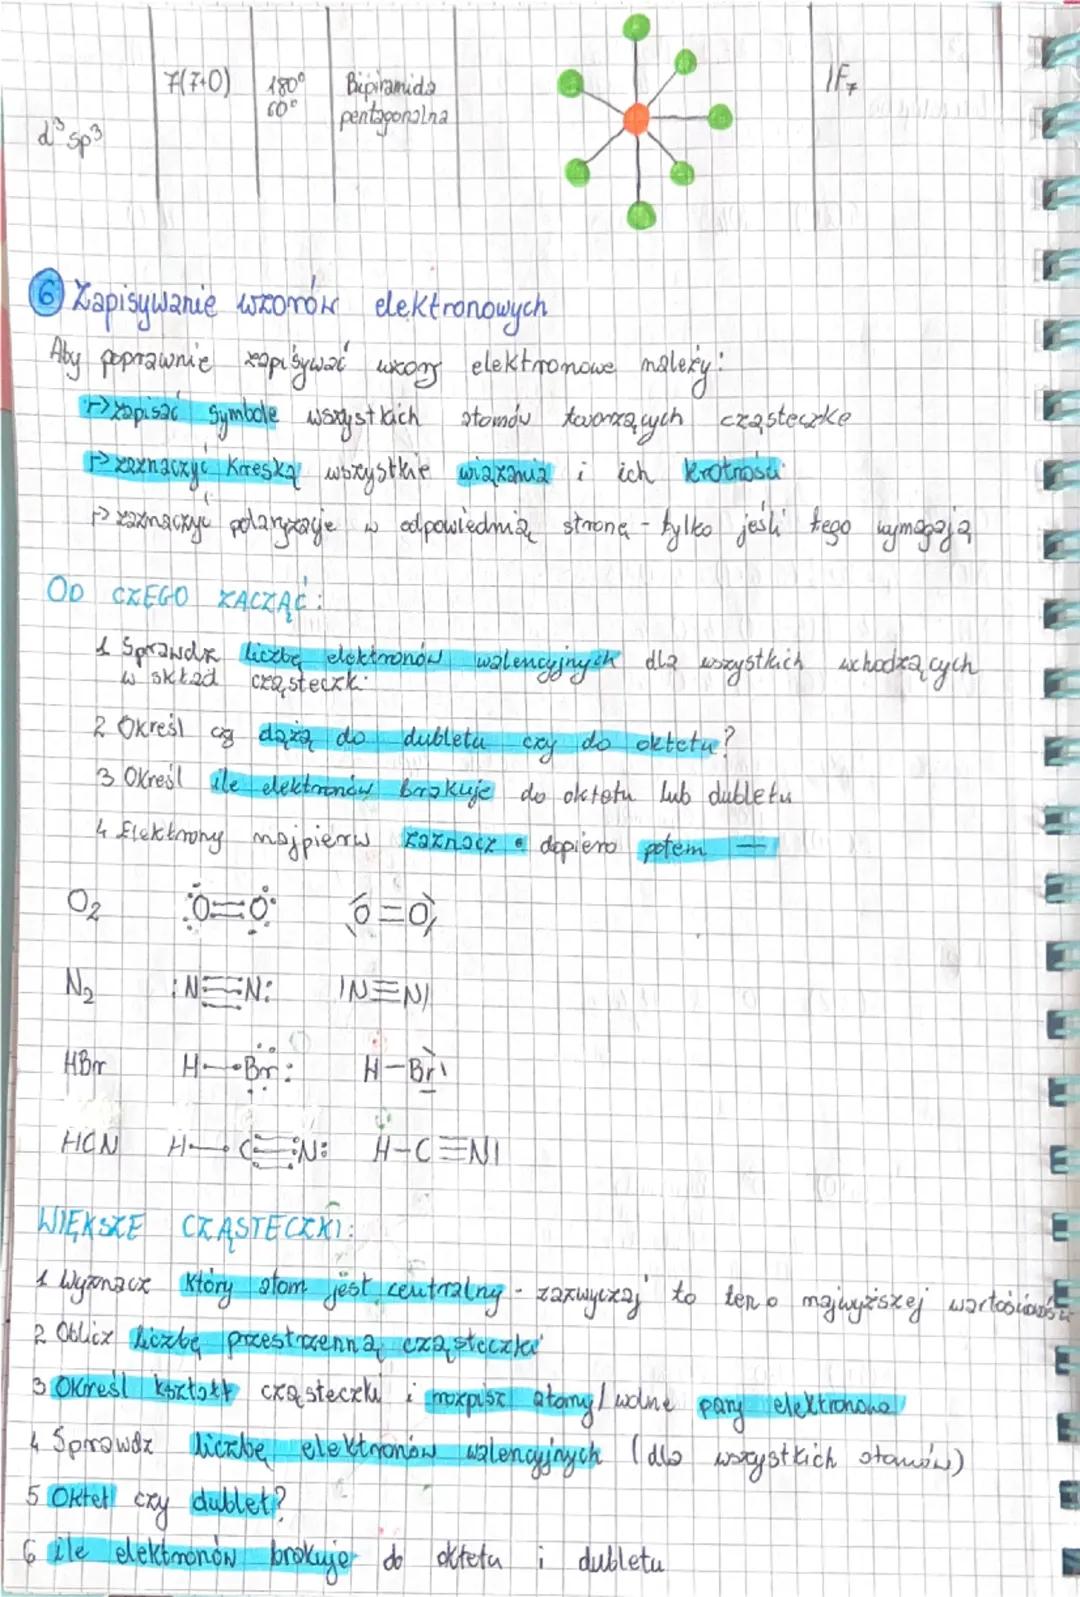 7(7+0) 180° Bipiramida IF₇
60° pentagonalna
d³sp³
6 Zapisywanie wzorów elektronowych
Aby poprawnie zapisywać wzory elektronowe należy:
↦ zapisać symbole wszystkich atomów tworzących cząsteczkę
↦ zaznaczyć kreską wszystkie wiązania i ich krotności
↦ zaznaczyć polaryzacje w odpowiednią stronę - tylko jeśli tego wymagają
OD CZEGO ZACZĄĆ:
1 Sprawdź liczbę elektronów walencyjnych dla wszystkich wchodzących
w skład cząsteczki
2 Określ czy dążą do dubletu czy do oktetu?
3 Określ ile elektronów brakuje do oktetu lub dubletu
4 Elektrony najpierw zaznacz • dopiero potem —
O₂ O=O O=O
N₂ :N≡N: |N≡N|
HBr H-Br: H-Br|
HCN H-C≡N: H-C≡N|
WIĘKSZE CZĄSTECZKI:
1 Wyznacz który atom jest centralny - zazwyczaj to ten o najwyższej wartościowości
2 Oblicz liczbę przestrzenną cząsteczki
3 Określ kształt cząsteczki i rozpisz atomy/wolne pary elektronowe
4 Sprawdz liczbę elektronów walencyjnych (dla wszystkich atomów)
5 Oktet czy dublet?
6 ile elektronów brakuje do oktetu i dubletu